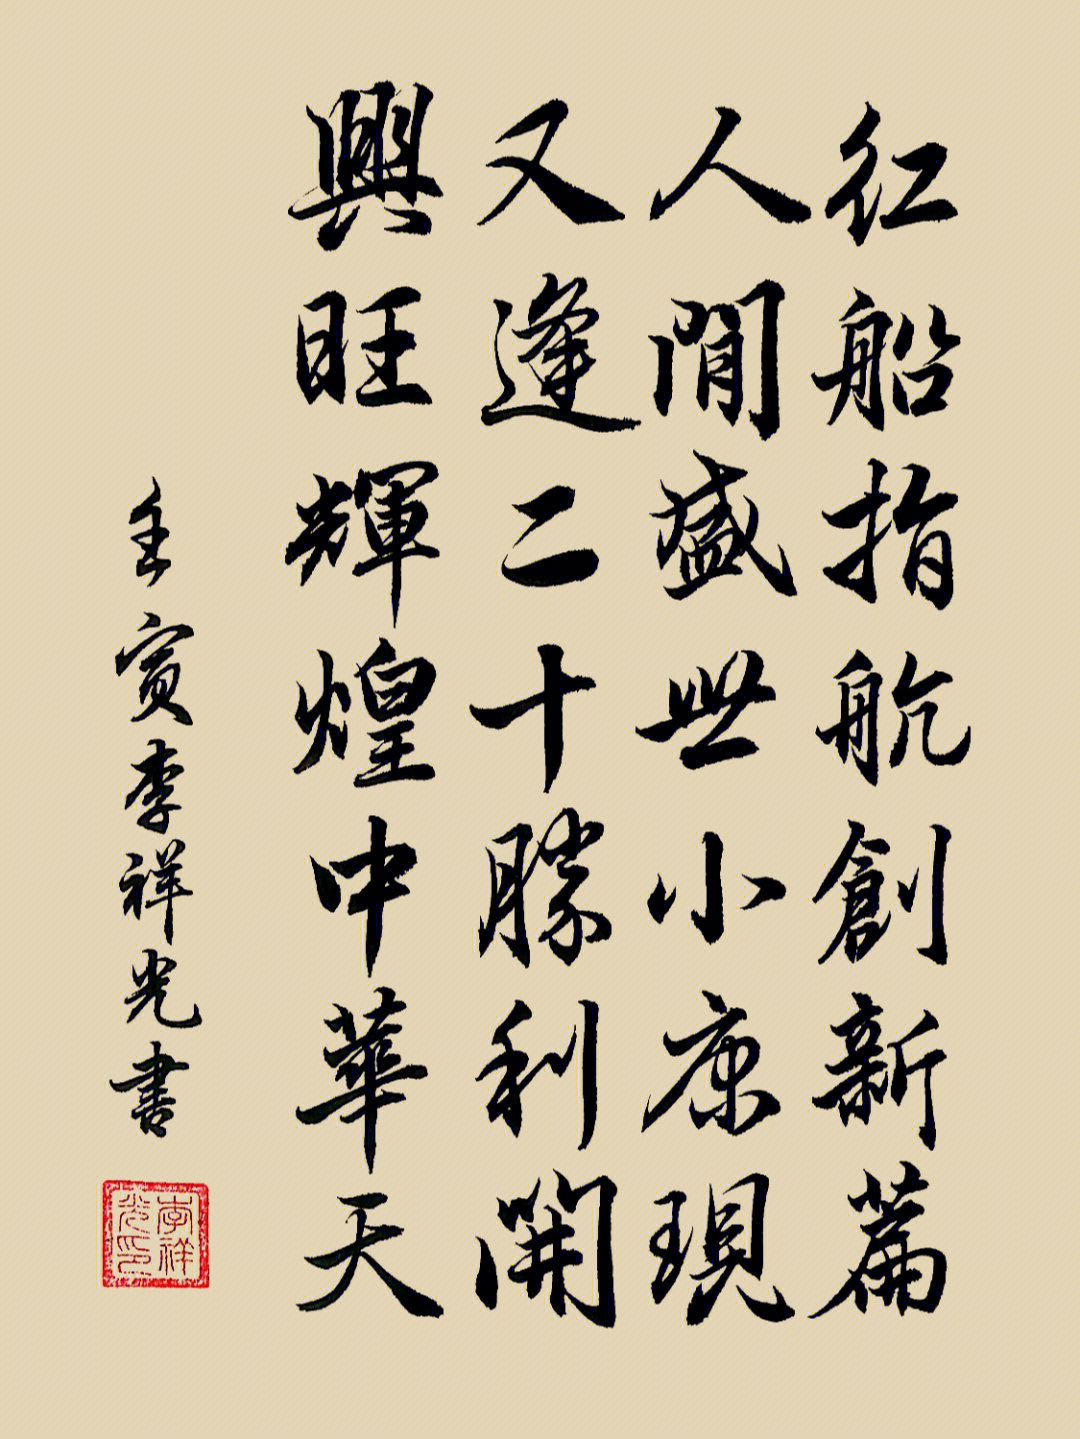 红船指航創新篇
人間盛世小康現
又逢二十勝利開
興旺輝煌中華天
壬寅李祥光書
李祥光印